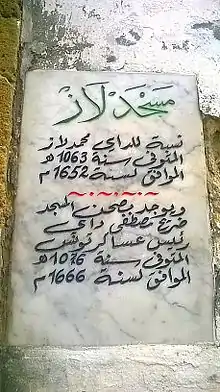 مسجد لاز
نسبة للداي محمد لاز
المتوفى سنة 1063 هـ
الموافق لسنة 1652 م
ويوجد بصحن المجد
ضريح مصطفى داي
رئيس عساكر تونس
المتوفى سنة 1076 هـ
الموافق لسنة 1666 م